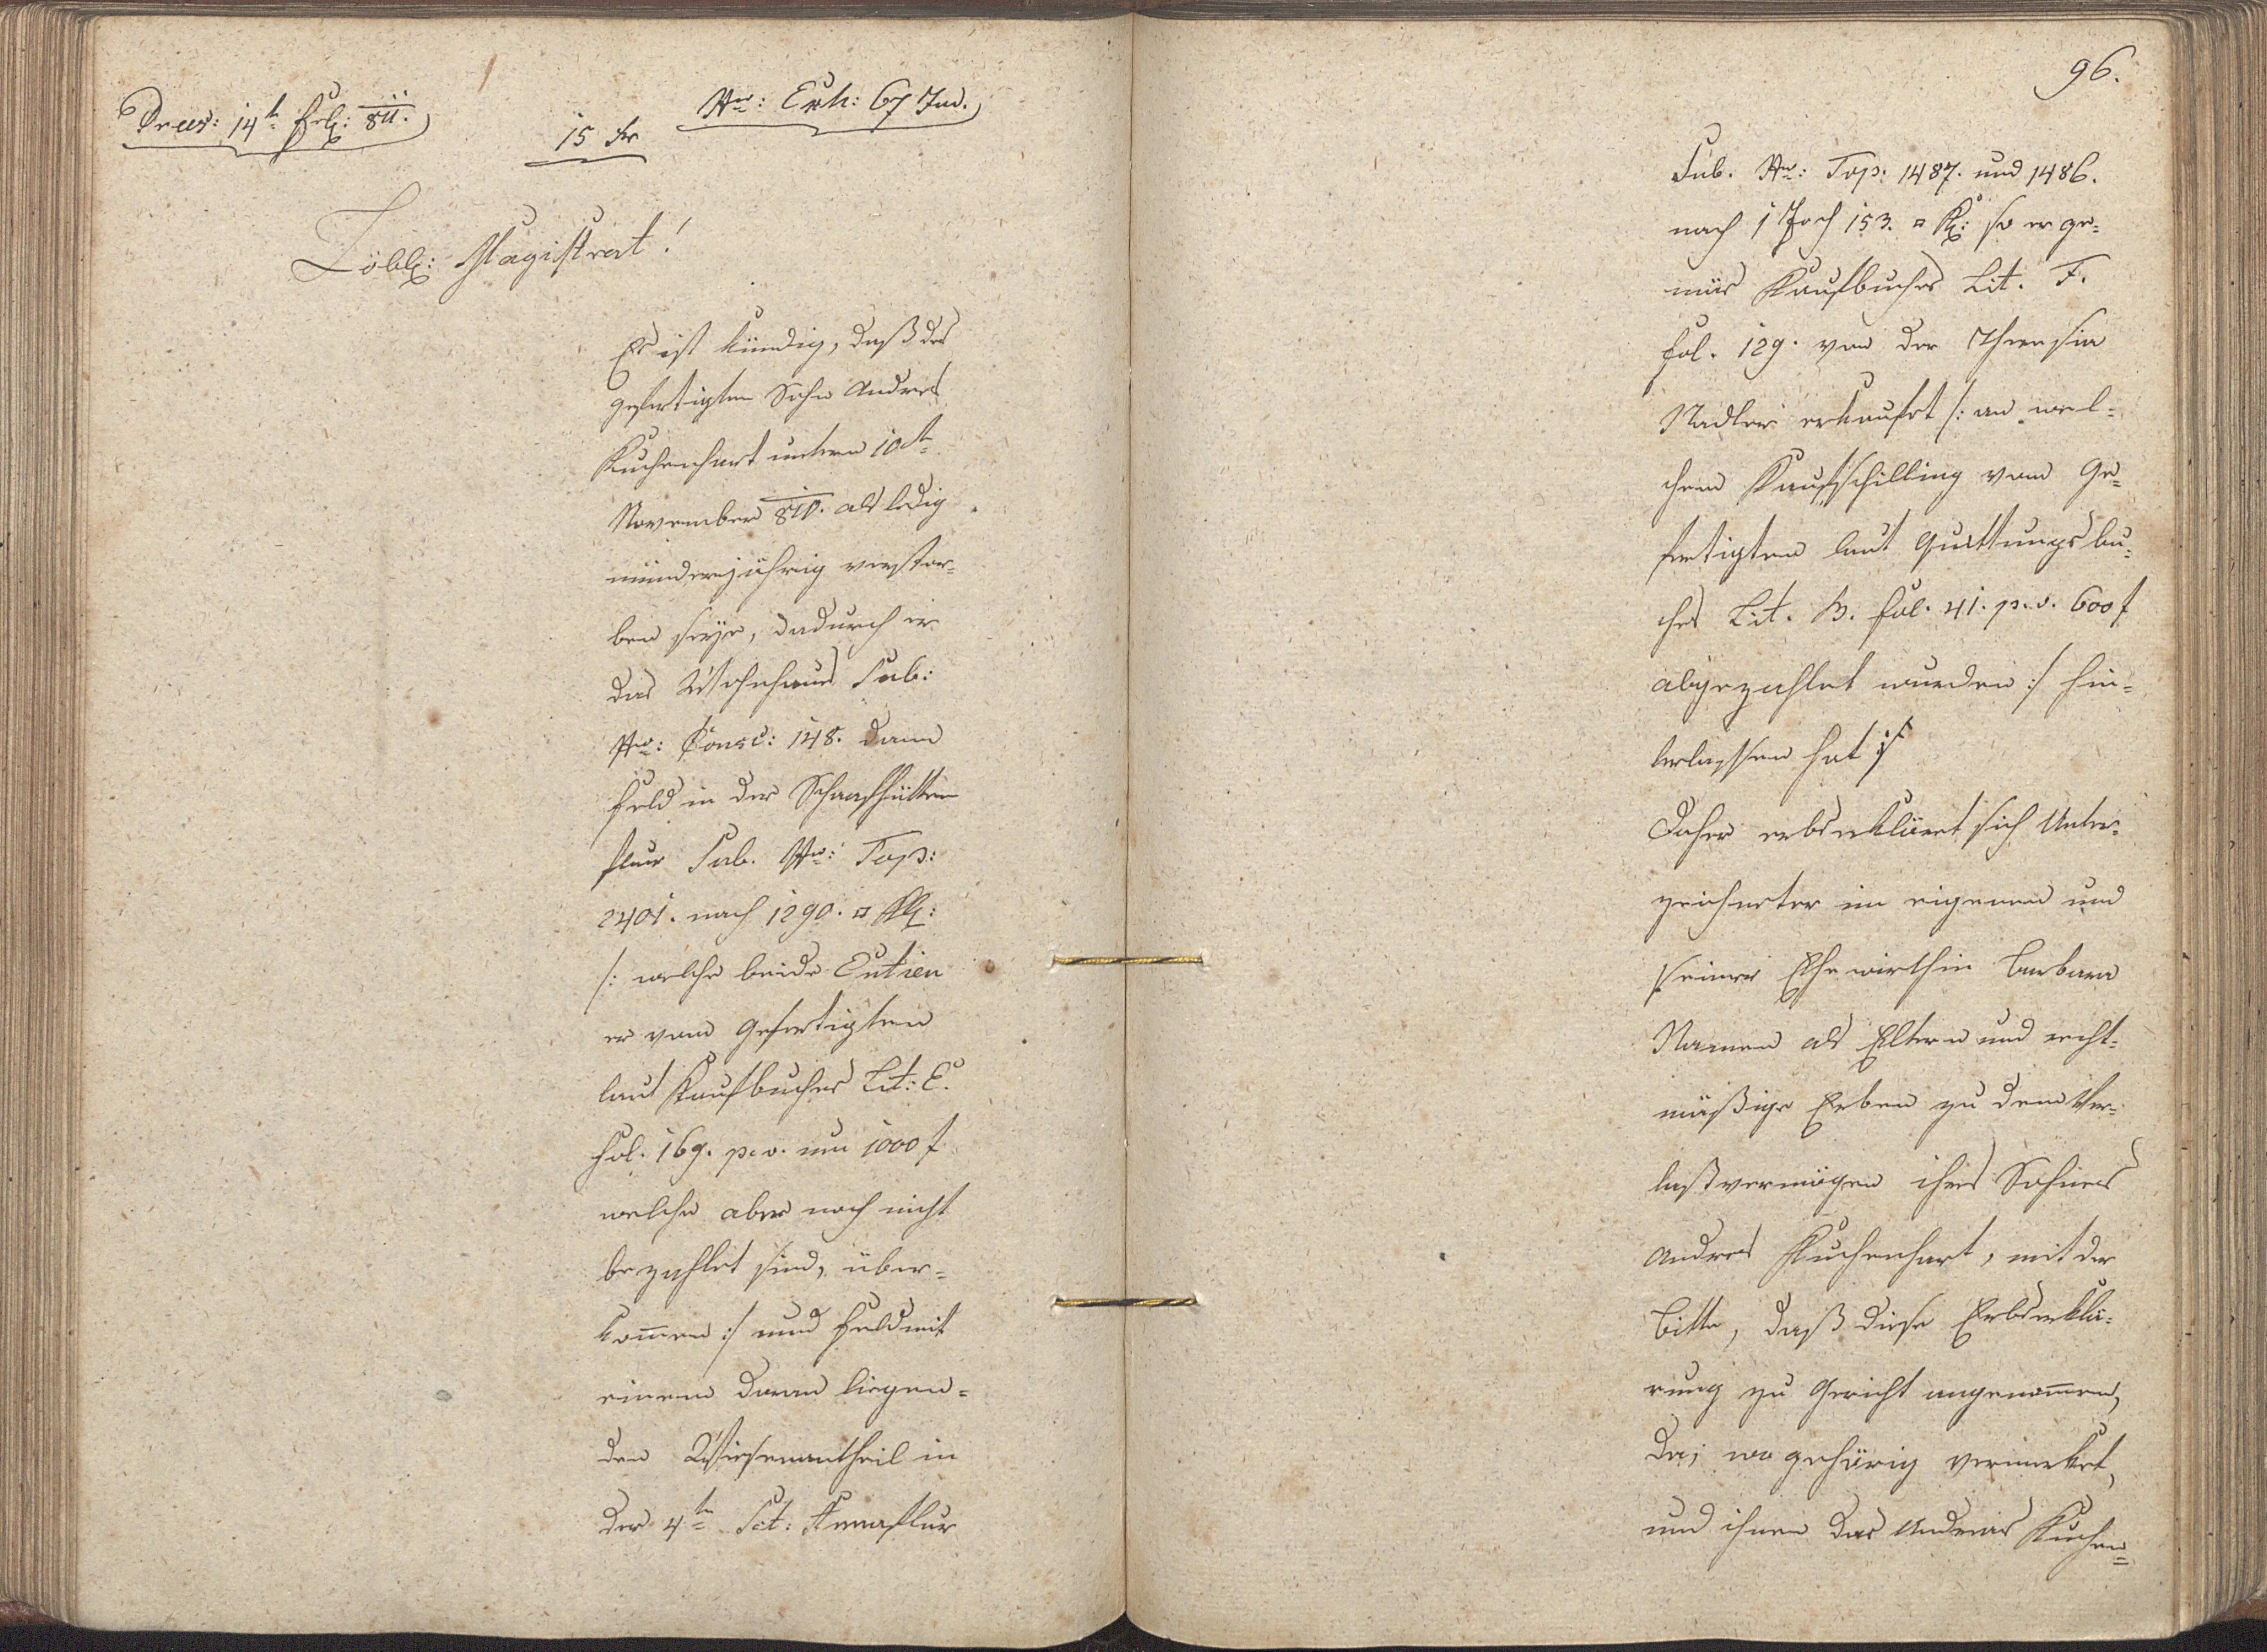 Praes: 14t Feb: 811.
15 Kr
Nro: Exh: 67 Jud.
Löbl: Magistrat!
Es ist kündig, daß des
gefertigten Sohn Andreas
Kuchenhart untern 10ten
November 810. als ledig
minderjährig verstor-
ben seye, dadurch er
das Wohnhaus Sub:
Nro: Consc: 148. dann
Feld in der Schaafhütten
flur Sub. Nro: Top:
2401. nach 1290. □ Kl:
/: welche beide
er vom Gefertigten
laut Kaufbuches Lit: E.
Fol. 169. p. v. um 1000 f
welche aber noch nicht
bezahlet sind, über-
kommen :/ und Feld mit
einem daran liegen-
den Wiesenantheil in
der 4ten Sct: Annaflur
96.
Sub. Nro: Top: 1487. und 1486.
nach 1 Joch 153. □ Kl: so er ge-
mäs Kaufbuches Lit. F.
fol. 129. von der Theresia
Nadler erkaufet /: an wel-
chem Kaufschilling vom Ge-
fertigten laut Quittungsbu-
ches Lit. B. fol. 41. p. v. 600 f
abgezahlet wurden :/ hin-
terlassen hat :/
Daher erbserkläret sich Unter-
zeichneter im eigenen und
seiner Ehewirthin Barbara
Namen als Eltern und recht-
mäßige Erben zu dem Ver-
laßvermögen ihres Sohnes
Andreas Kuchenhart, mit der
Bitte, daß diese Erbserklä-
rung zu Gericht angenommen,
da, wo gehörig vermerket,
und ihnen das Andreas Kuchen-